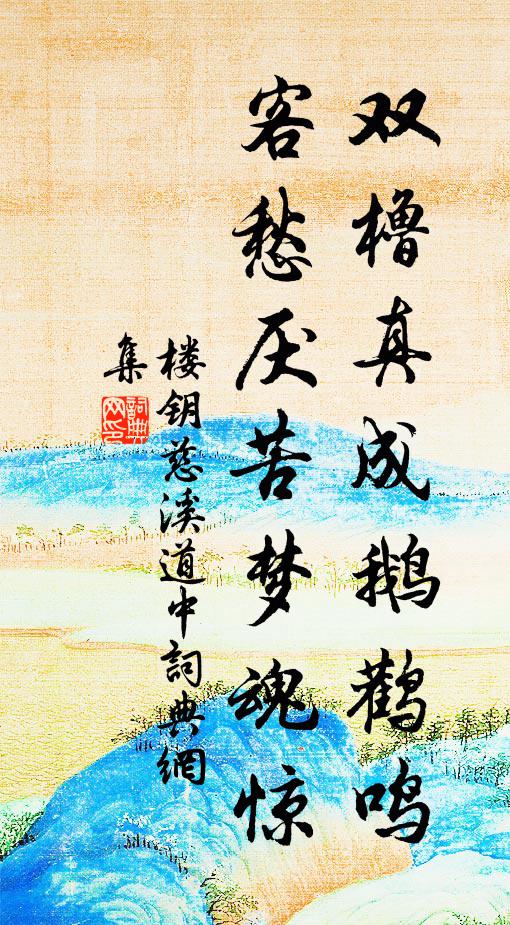 双橹真成鹅鹳鸣
客愁厌苦梦魂惊
楼钥慈溪道中詞典網
集
詞典网印